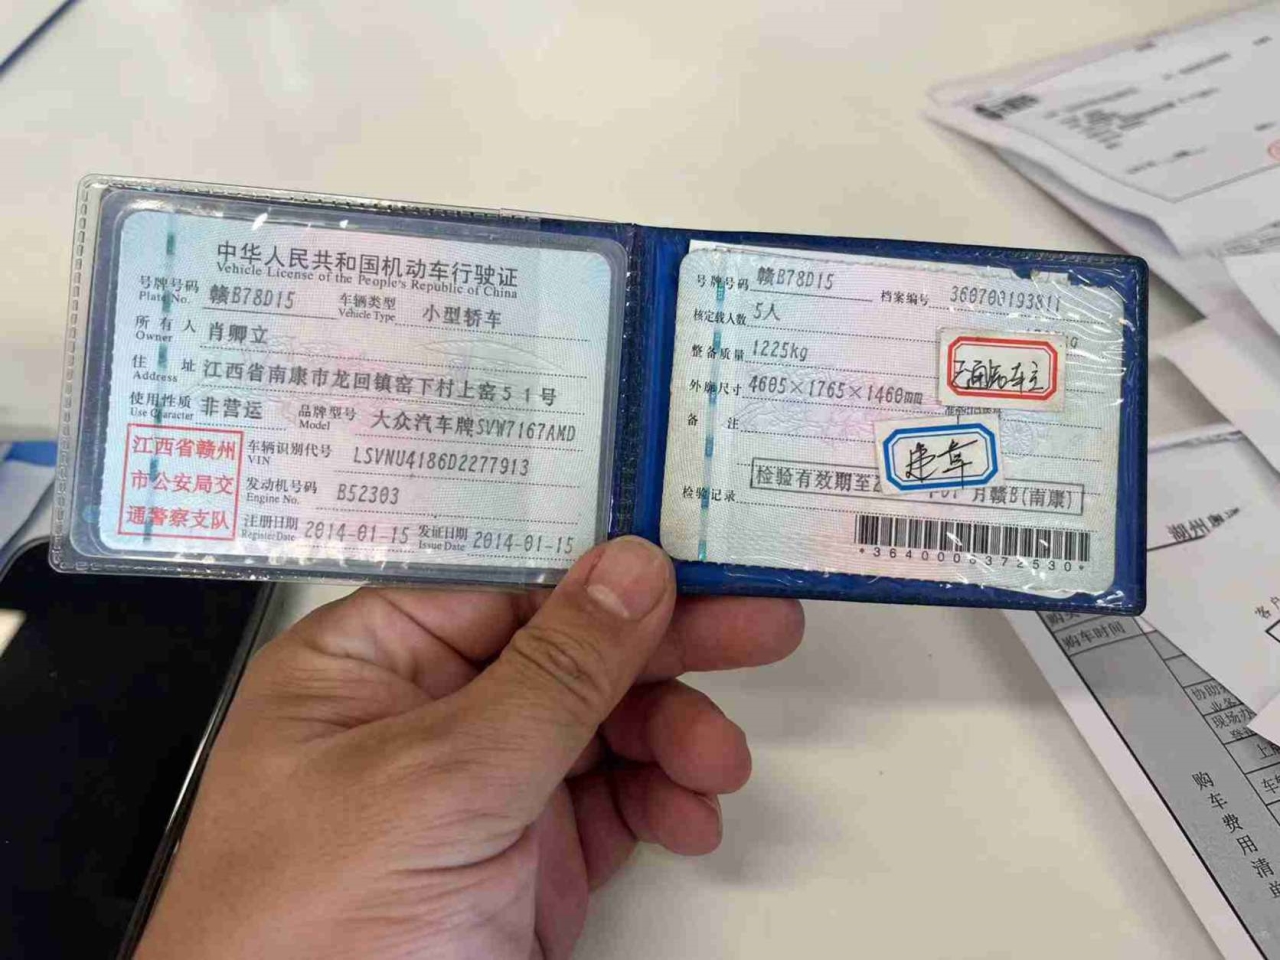 中华人民共和国机动车行驶证
Vehicle License of the People's Republic of China
号牌号码 赣B78D15 车辆类型 小型轿车
Plate No. Vehicle Type
所有人 肖卿立
Owner
住址 江西省南康市龙回镇窑下村上窑51号
Address
使用性质 非营运 品牌型号 大众汽车牌SVW7167AMD
Use Character Model
江西省赣州
市公安局交
通警察支队
车辆识别代号 LSVNU4186D2277913
VIN
发动机号码 B52303
Engine No.
注册日期 2014-01-15 发证日期 2014-01-15
Register Date Issue Date
号牌号码 赣B78D15 档案编号 360700193811
核定载人数 5人
整备质量 1225kg
外廓尺寸 4605×1765×1460mm
备注
检验记录
检验有效期至2 月赣B(南康)
*3640006372530*
湖州
客户
购车时间
协助
业务
现场办
购车费用清单